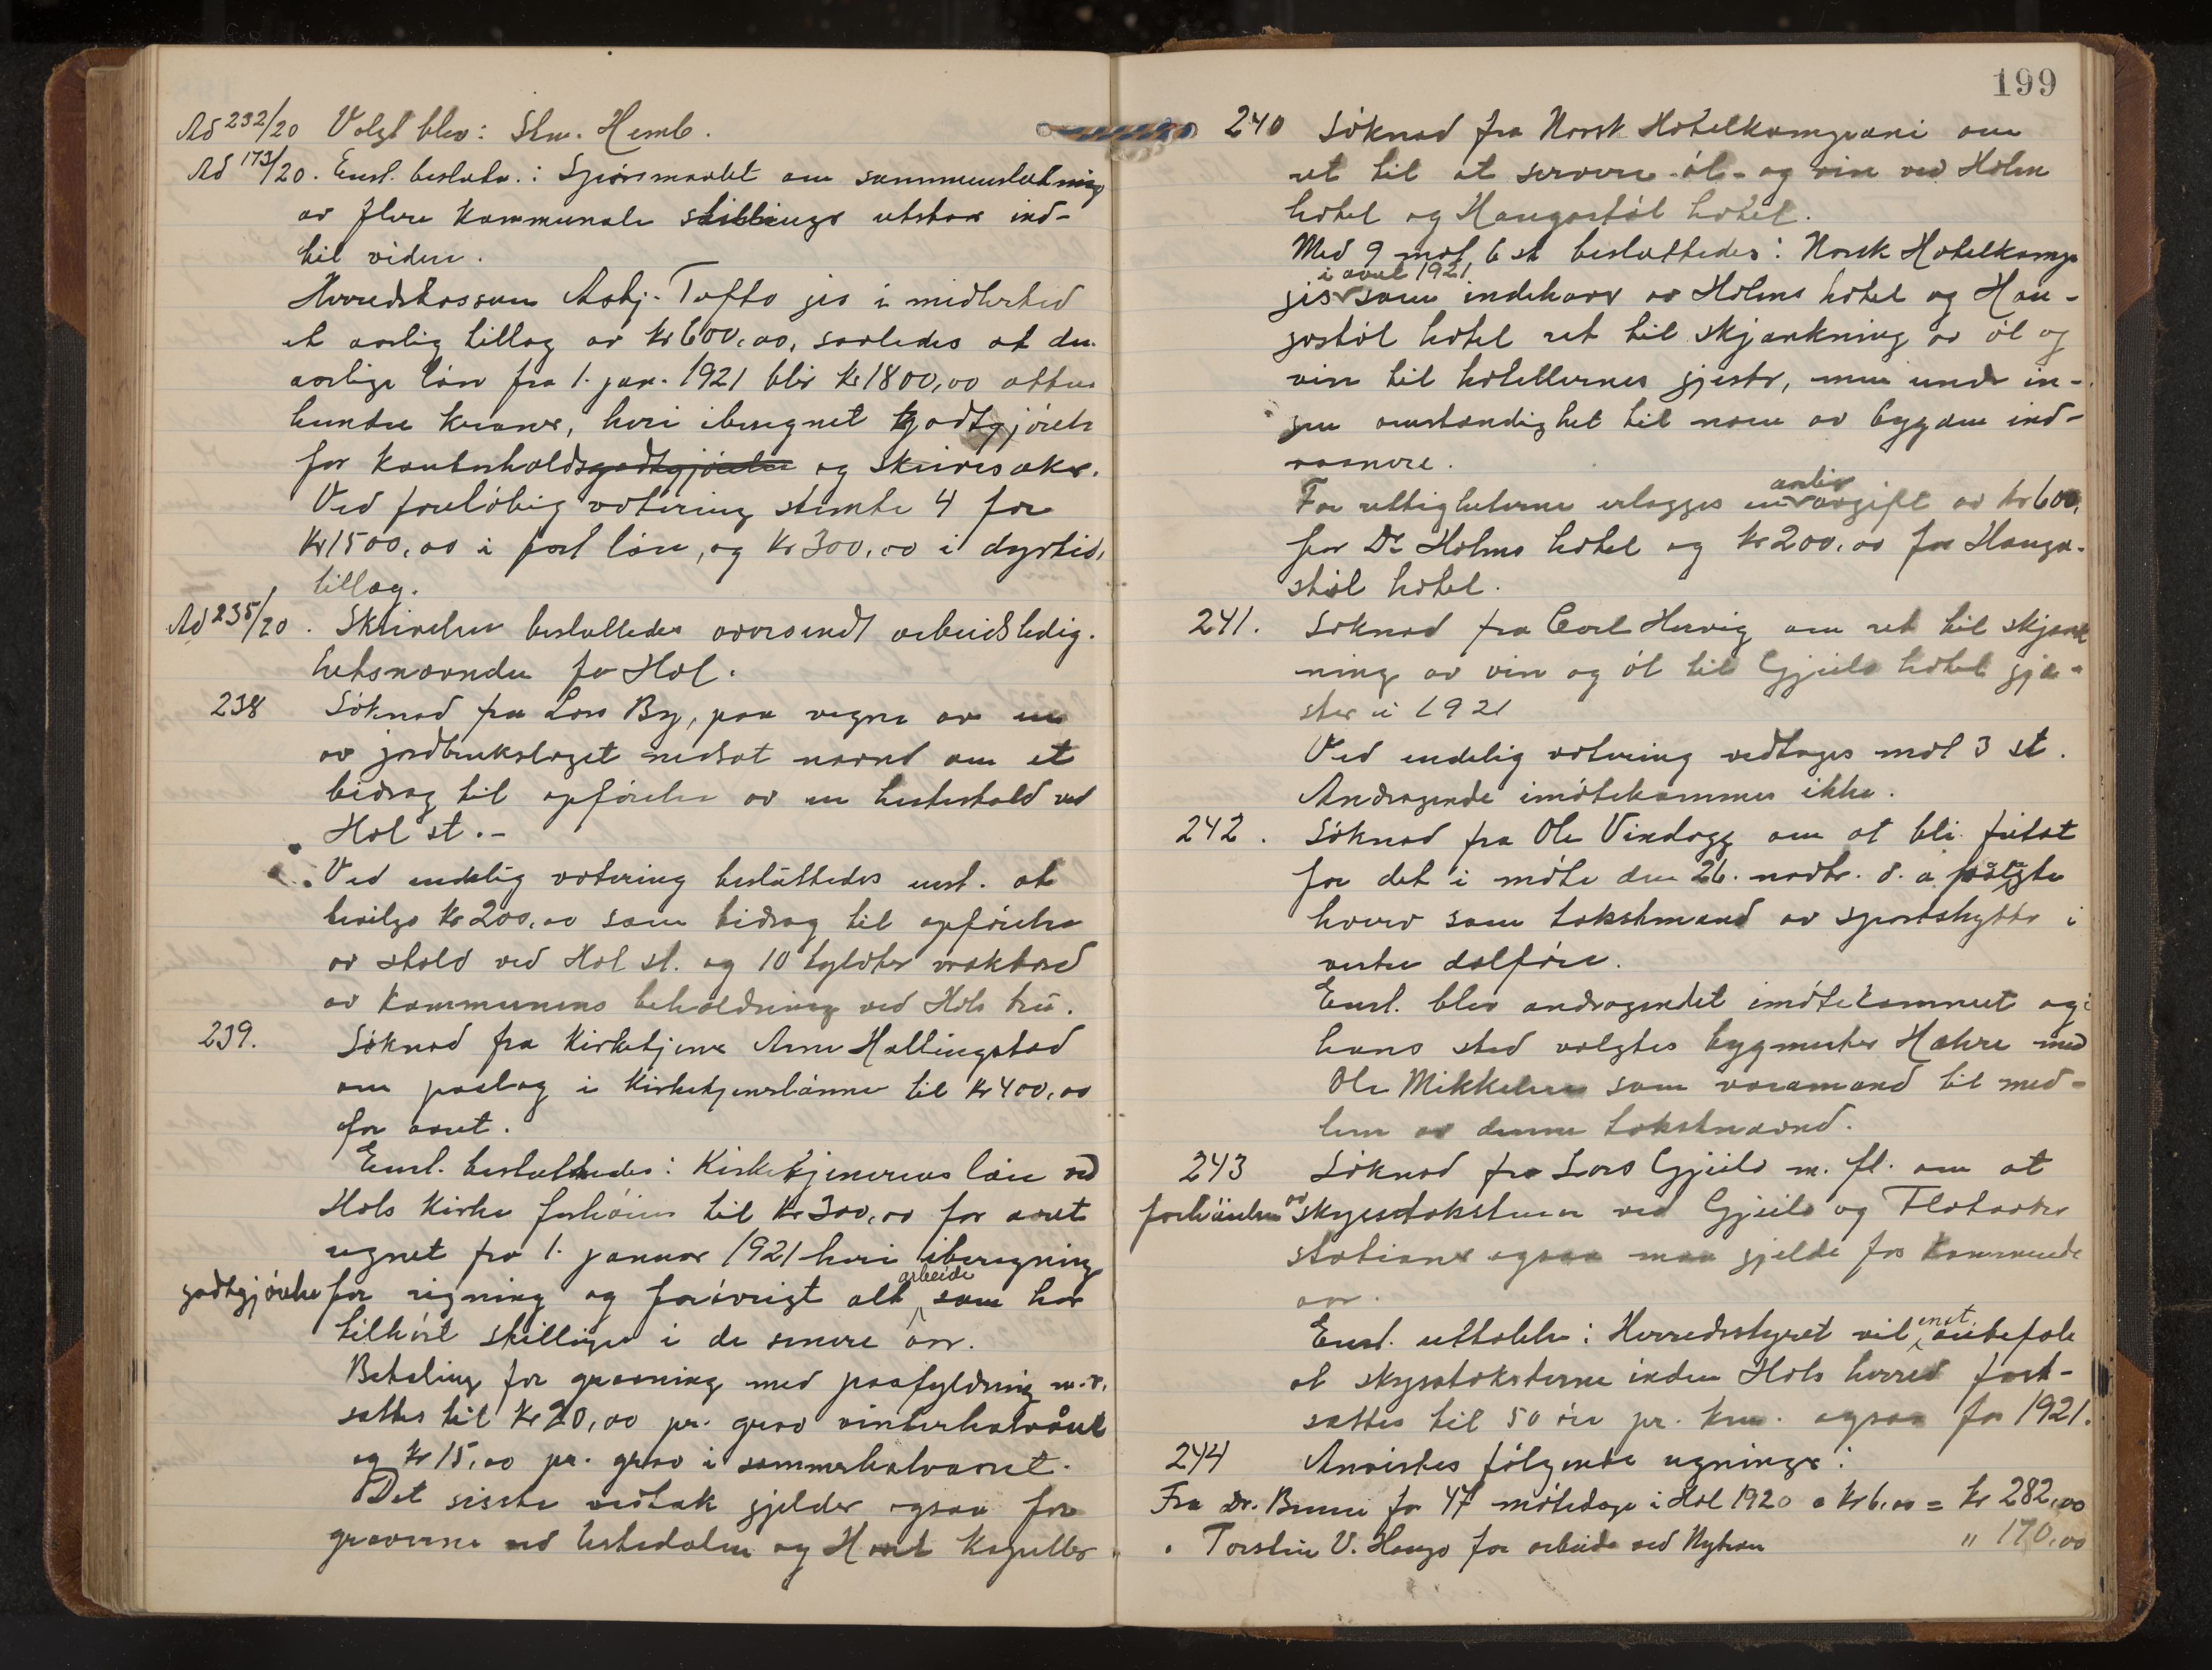 Ad 232/20 Valgt blev: Stm. Hemb.
Ad 173/20. Enst. beslutn.: Spörsmaalet om sammenslutning
av flere kommunale stillinger utstaar ind-
til videre.
Herredskasserer Asbj. Tufto gis i midlertid
et aarlig tillæg av kr 600,00, saaledes at den
aarlige løn fra 1. jan. 1921 blir kr 1800,00 atten
hundre kroner, heri iberegnet godtgjörelse
for kontorholdsgodtgjörelse og skrivesaker.
Ved foreløbig votering stemte 4 for
kr 1500,00 i fast løn, og kr 300,00 i dyrtids
tillæg.
Ad 235/20. Skrivelsen besluttedes oversendt arbeidsledig-
hetsnævnden for Hol.
238 Söknad fra Lars By, paa vegne av en
av jordbrukslaget nedsat nævnd om et
bidrag til opförelse av en hestestald ved
Hol st.-
Ved endelig votering besluttedes enst. at
bevilge kr 200,00 som bidrag til opförelse
av stald ved Hol st. og 10 tylvter vrakbord
av kommunens beholdning ved Hols bru.
239. Söknad fra Kirketjener Arne Hallingstad
om paalæg i Kirketjenerlönnen til kr 400,00
for aaret.
Enst. besluttedes: Kirketjenerens løn ved
Hols Kirke forhöies til kr 300,00 for aaret
regnet fra 1. januar 1921 heri iberegning
godtgjörelse for ringning og forövrigt alt arbeide som har
tilhört stillingen i de senere aar.
Betaling for gravning med paafyldning m.v.
sættes til kr 20,00 pr. grav vinterhalvåret
og kr 15,00 pr. grav i sommerhalvaaret.
Det siste vedtak gjelder ogsaa for
graverne ved Ustedalen og Hovet Kapeller.
199
240 Söknad fra Norsk Hotelkompani om
ret til at servere öl- og vin ved Holms
hotel og Haugastöl hotel.
Med 9 mot 6 st besluttedes: Norsk Hotelkomp.
gis i aaret 1921 som indehaver av Holms hotel og Hau-
gastöl hotel ret til skjænkning av öl og
vin til hotellernes gjester, men under in-
gen omstændighet til noen av bygdens ind-
vaanere.
For rettigheterne erlægges en aarlig avgift av kr 600,
for Dr Holms hotel og kr 200,00 for Hauga-
stöl hotel.
241. Söknad fra Carl Hervig om ret til skjænk
ning av vin og öl til Gjeilo hotel gjæ-
ster i 1921
Ved endelig votering vedtages mot 3 st.
Andragende imötekommes ikke.
242. Söknad fra Ole Vindegg om at bli fritat
for det i möte den 26. novbr. d. a. paalagte
hverv som takstmand av sportshytter i
vestre dalföre.
Enst. blev andragendet imötekommet og i
hans sted valgtes bygmester Hæhre med
Ole Mikkelsen som varamand til med-
lem av denne takstnævnd.
243 Söknad fra Lars Gjeilo m. fl. om at
forhöielsen av skysstakstene ved Gjeilo og Flataaker
stationer ogsaa maa gjelde for kommende
aar.
Enst. uttalelse: Herredsstyret vil enst. anbefale
at skysstaksterne inden Hols herred fast-
sættes til 50 öre pr. km. ogsaa for 1921.
244 Anvistes fölgende regninger:
Fra Dr. Bruun for 47 mötedage i Hol 1920 a kr 6,00 = kr 282,00
" Torstein V. Haugo for arbeide ved Nyhven " 170,00